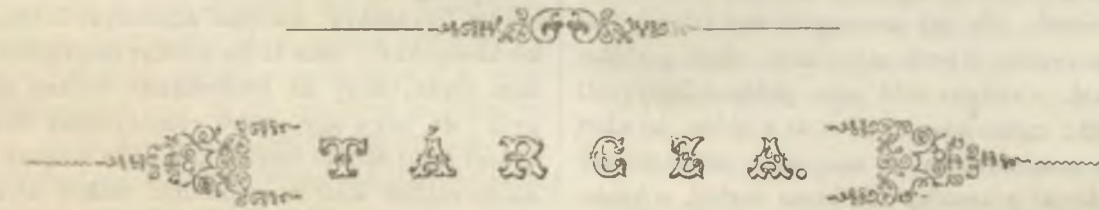 TÁRCZA.